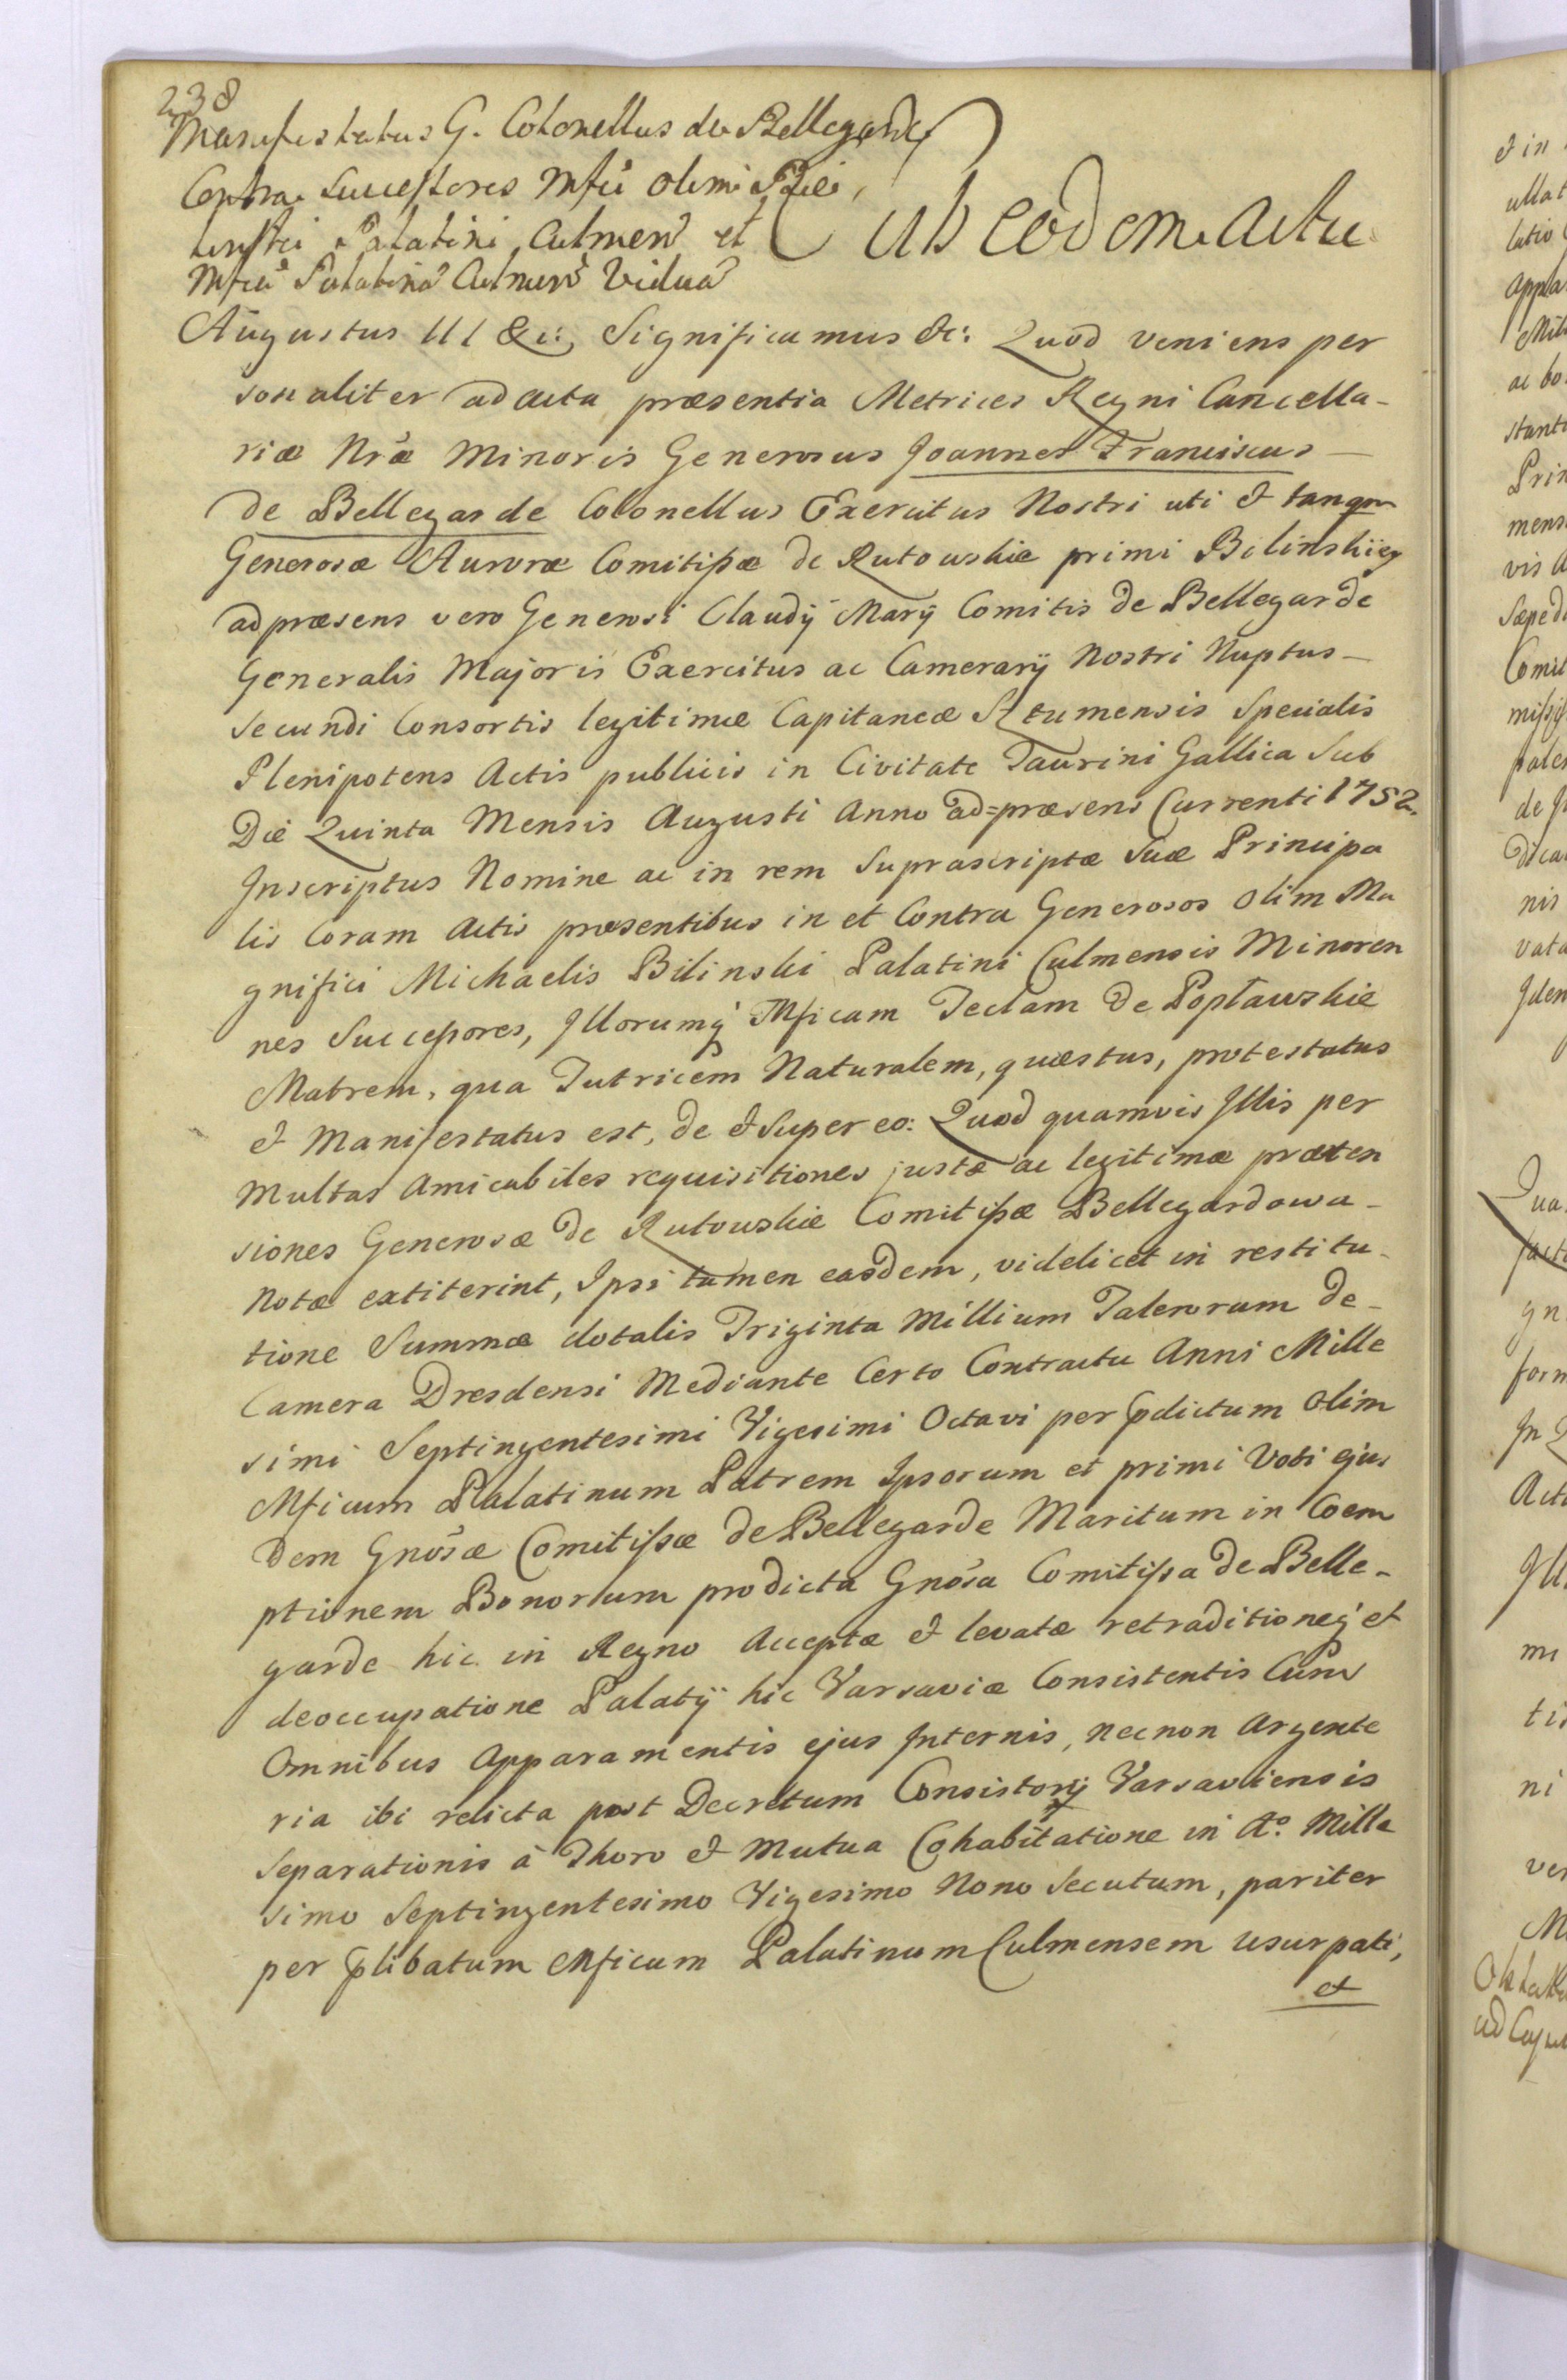 238
Manifestatus G. Colonellus de Bellegarde
Contra Succeſsores Mfci olim
Palatini Culmen et
Mfcã Palatinã Culmen Viduã
Sub eodem actu
Augustus III &c: Significamus &c: Quod veniens per
sonaliter ad acta præsentia Metrices Regni Cancella-
riæ Nrã Minoris Generosus Joannes Franciscus —
de Bellegarde Colonellus Exercitus Nostri uti & tanqm
Generosæ Auroræ Comitiſsæ de Rutowskie primi Bilinskiey
ad præsens vero Generosi Claudÿ Marÿ Comitis de Bellegarde
Generalis Majoris Exercitus ac Camerarÿ Nostri Nuptus —
Secundi Consortis legitimæ Capitaneæ Sztumensis Specialis
Plenipotens Actis publicis in Civitate Taurini Gallica Sub
Die Quinta Mensis Augusti Anno ad=præsens Currenti 1752.
Inscriptus Nomine ac in rem Suprascriptæ Suæ Principa
lis Coram Actis præsentibus in et Contra Generosos olim Ma
gnifici Michaelis Bilinski Palatini Culmensis Minoren
nes Succeſsores, Illorumq́ Mficam Teclam de Popławskie
Matrem, qua Tutricem Naturalem, quæstus, protestatus
& Manifestatus est, de & Super eo: Quod quamvis Illis per
Multas Amicabiles requisitiones justæ ac legitimæ præten
siones Generosæ de Rutowskie Comitiſsæ Bellegardowa -
Notæ extiterint, Ipsi tamen easdem, videlicet in restitu-
tione Summæ dotalis Triginta Millium Talerorum de -
Camera Dresdensi Mediante Certo Contractu Anni Mille
simi Septingentesimi Vigesimi Octavi per p̃dictum olim
Mficum Palatinum Patrem Ipsorum et primi Voti ejus
dem Gnõsæ Comitiſsæ de Bellegarde Maritum in Coem
ptionem Bonorum prodicta Gnõsa Comitiſsa de Belle-
garde hic in Regno Acceptæ & levatæ retraditioneq́ et
deoccupatione Palatÿ hic Varsaviæ Consistentis Cum
Omnibus Apparamentis ejus Internis, necnon Argente
ria ibi relicta post Decretum Consistorÿ Varsaviensis
Separationis à Thoro & Mutua Cohabitatione in Aº. Mille
simo Septingentesimo Vigesimo Nono Secutum, pariter
per p̃libatum Mficum Palatinum Culmensem usurpati,
et